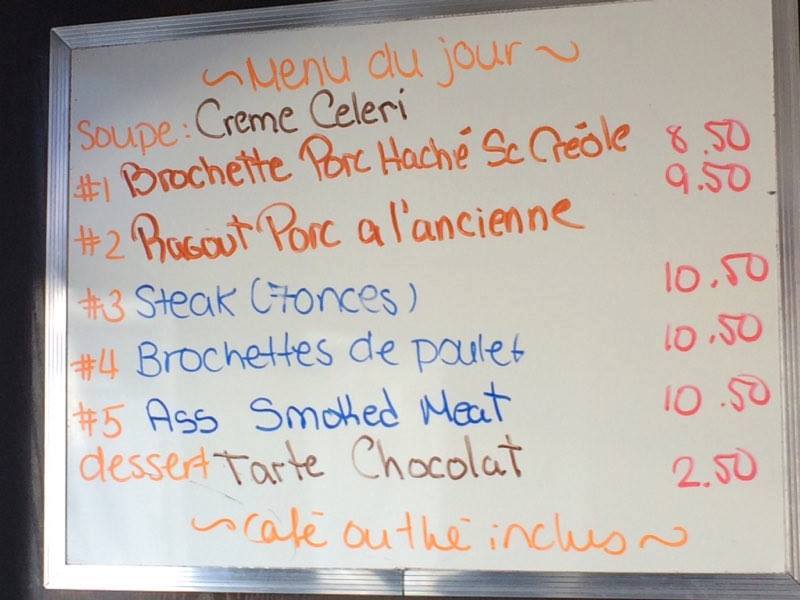 ~ Menu du jour ~
soupe: Creme Celeri
#1 Brochette Porc Haché Sc Créole 8.50
9.50
#2 Ragout Porc a l'ancienne
#3 Steak (7onces) 10.50
#4 Brochettes de poulet 10.50
#5 Ass Smoked Meat 10.50
dessert Tarte Chocolat 2.50
~ café ou thé inclus ~